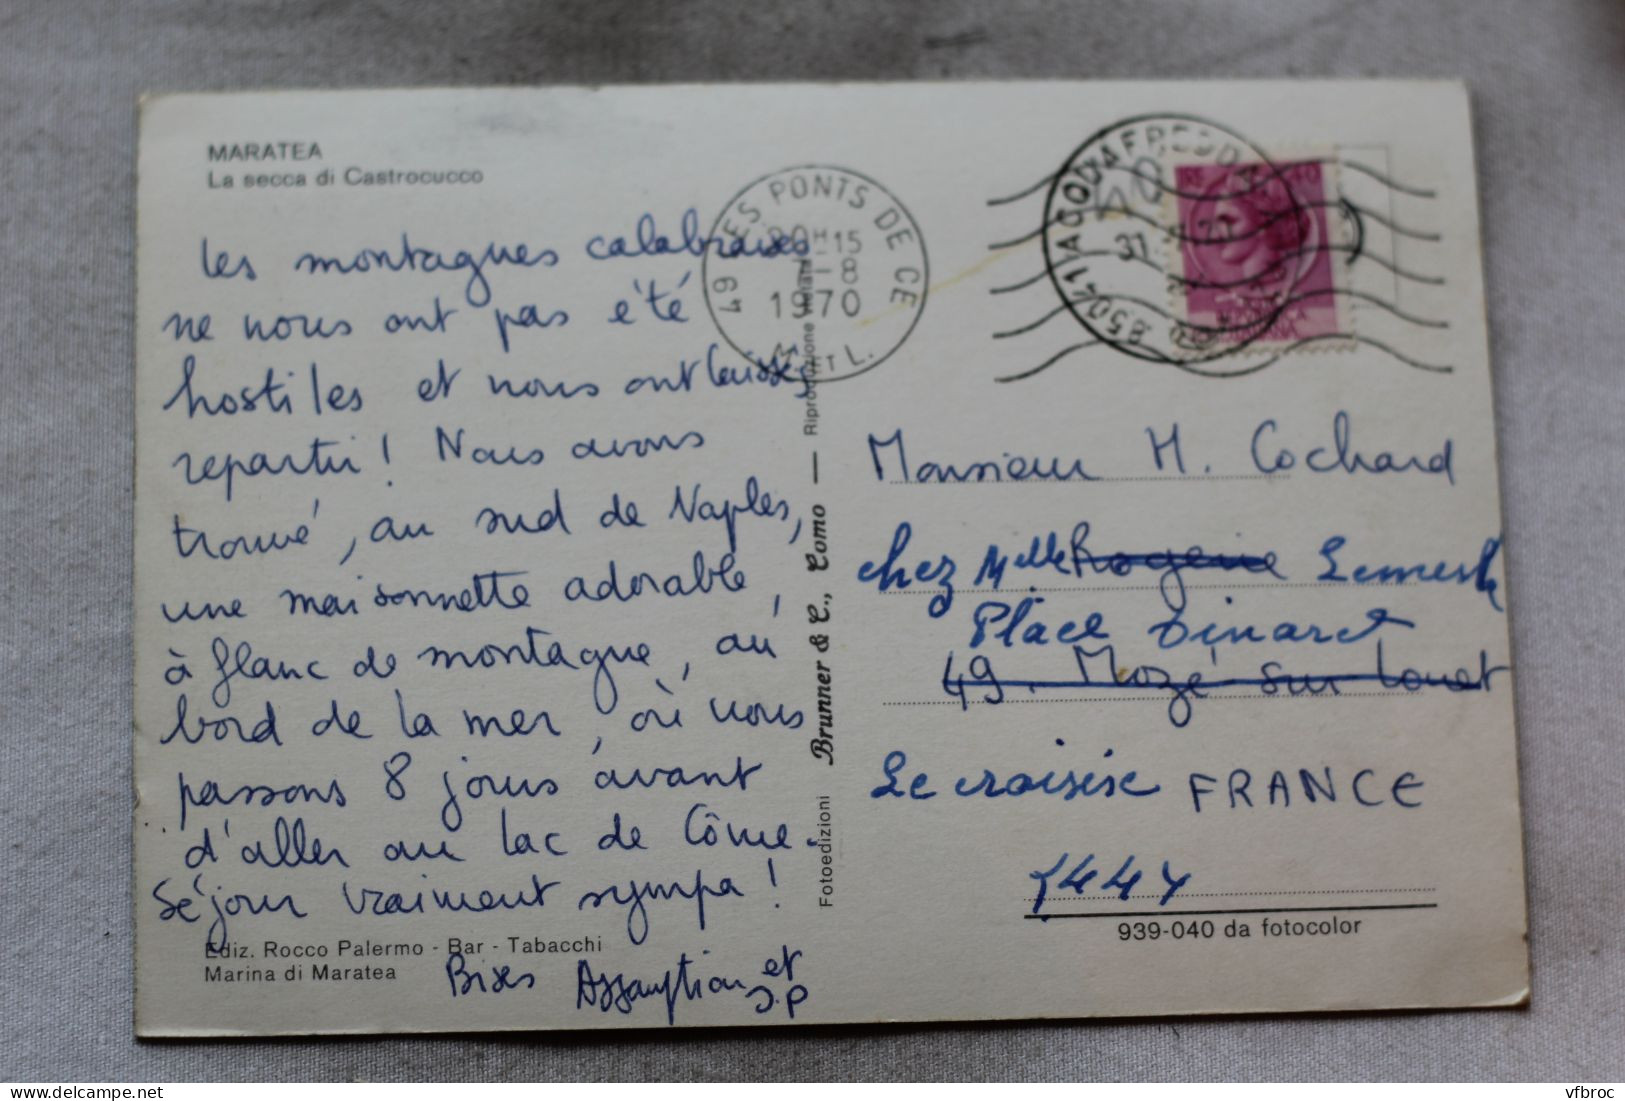 MARATEA
La secca di Castrocucco
Les montagnes calabraises
ne nous ont pas été
hostiles et nous ont laissés
repartir! Nous avons
trouvé, au sud de Naples,
une maisonnette adorable,
à flanc de montagne, au
bord de la mer, où nous
passons 8 jours avant
d'aller au lac de Côme.
Séjour vraiment sympa!
Bises Assomption et
J.P
Ediz. Rocco Palermo - Bar - Tabacchi
Marina di Maratea
Fotoedizioni Brunner & C., Como — Riproduzione vietata
49 LES PONTS DE CE
20H15
7-8
1970
M. ET L.
85041 ACQUAFREDDA
31
Monsieur H. Cochard
chez Mlle Rogerie Lemesle
Place Dinard
49. Mozé sur Louet
Le croisic FRANCE
939-040 da fotocolor
vfbroc